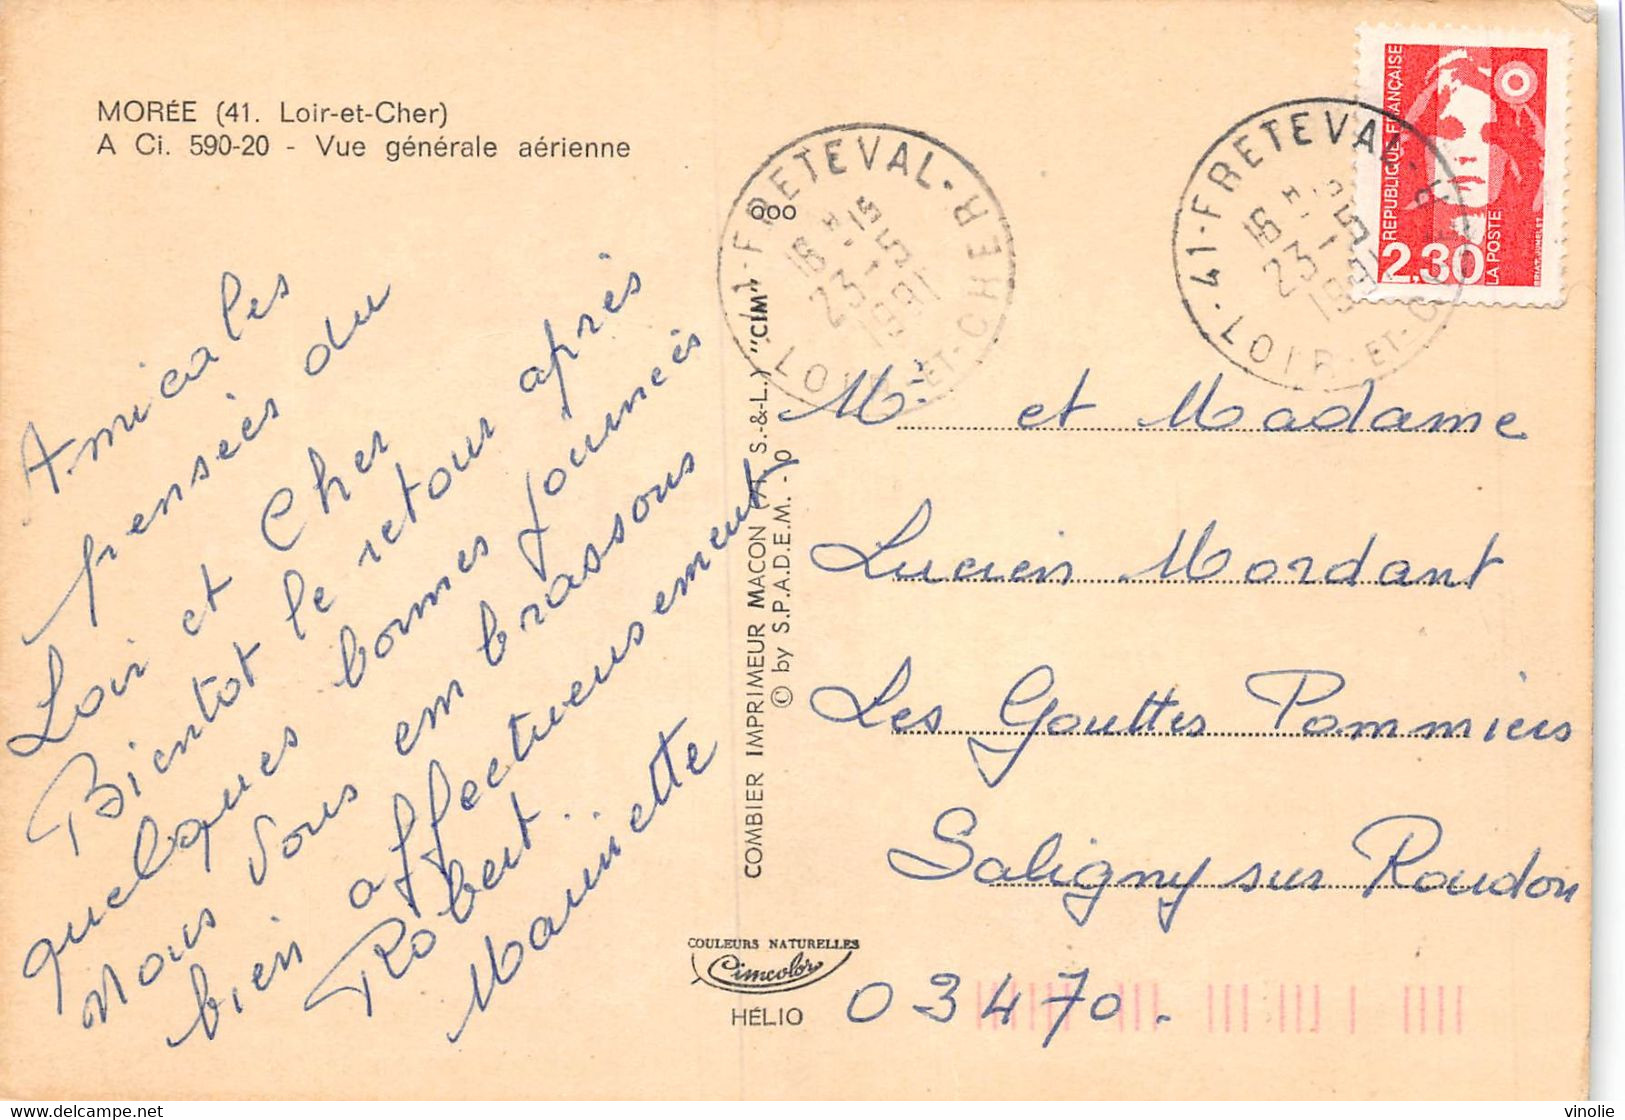 MORÉE (41. Loir-et-Cher)
A Ci. 590-20 - Vue générale aérienne
Amicales
pensées du
Loir et Cher
Bientot le retour après
quelques bonnes journées
Nous vous embrassons
bien affectueusement
Robert.
Mauricette
COMBIER IMPRIMEUR MACON (A. S.-&-L.) "CIM"
© by S.P.A.D.E.M. - 0
ooo
COULEURS NATURELLES
Cimcolor
HÉLIO
41-FRETEVAL-
LOIR-ET-CHER
16 H 15
23-5
1991
41-FRETEVAL-
LOIR-ET-CHER
16 H 15
23-5
1991
REPUBLIQUE FRANÇAISE
2,30
LA POSTE
Mr et Madame
Lucien Mordant
Les Gouttes Pommiers
Saligny sur Roudon
03470.
vinolie